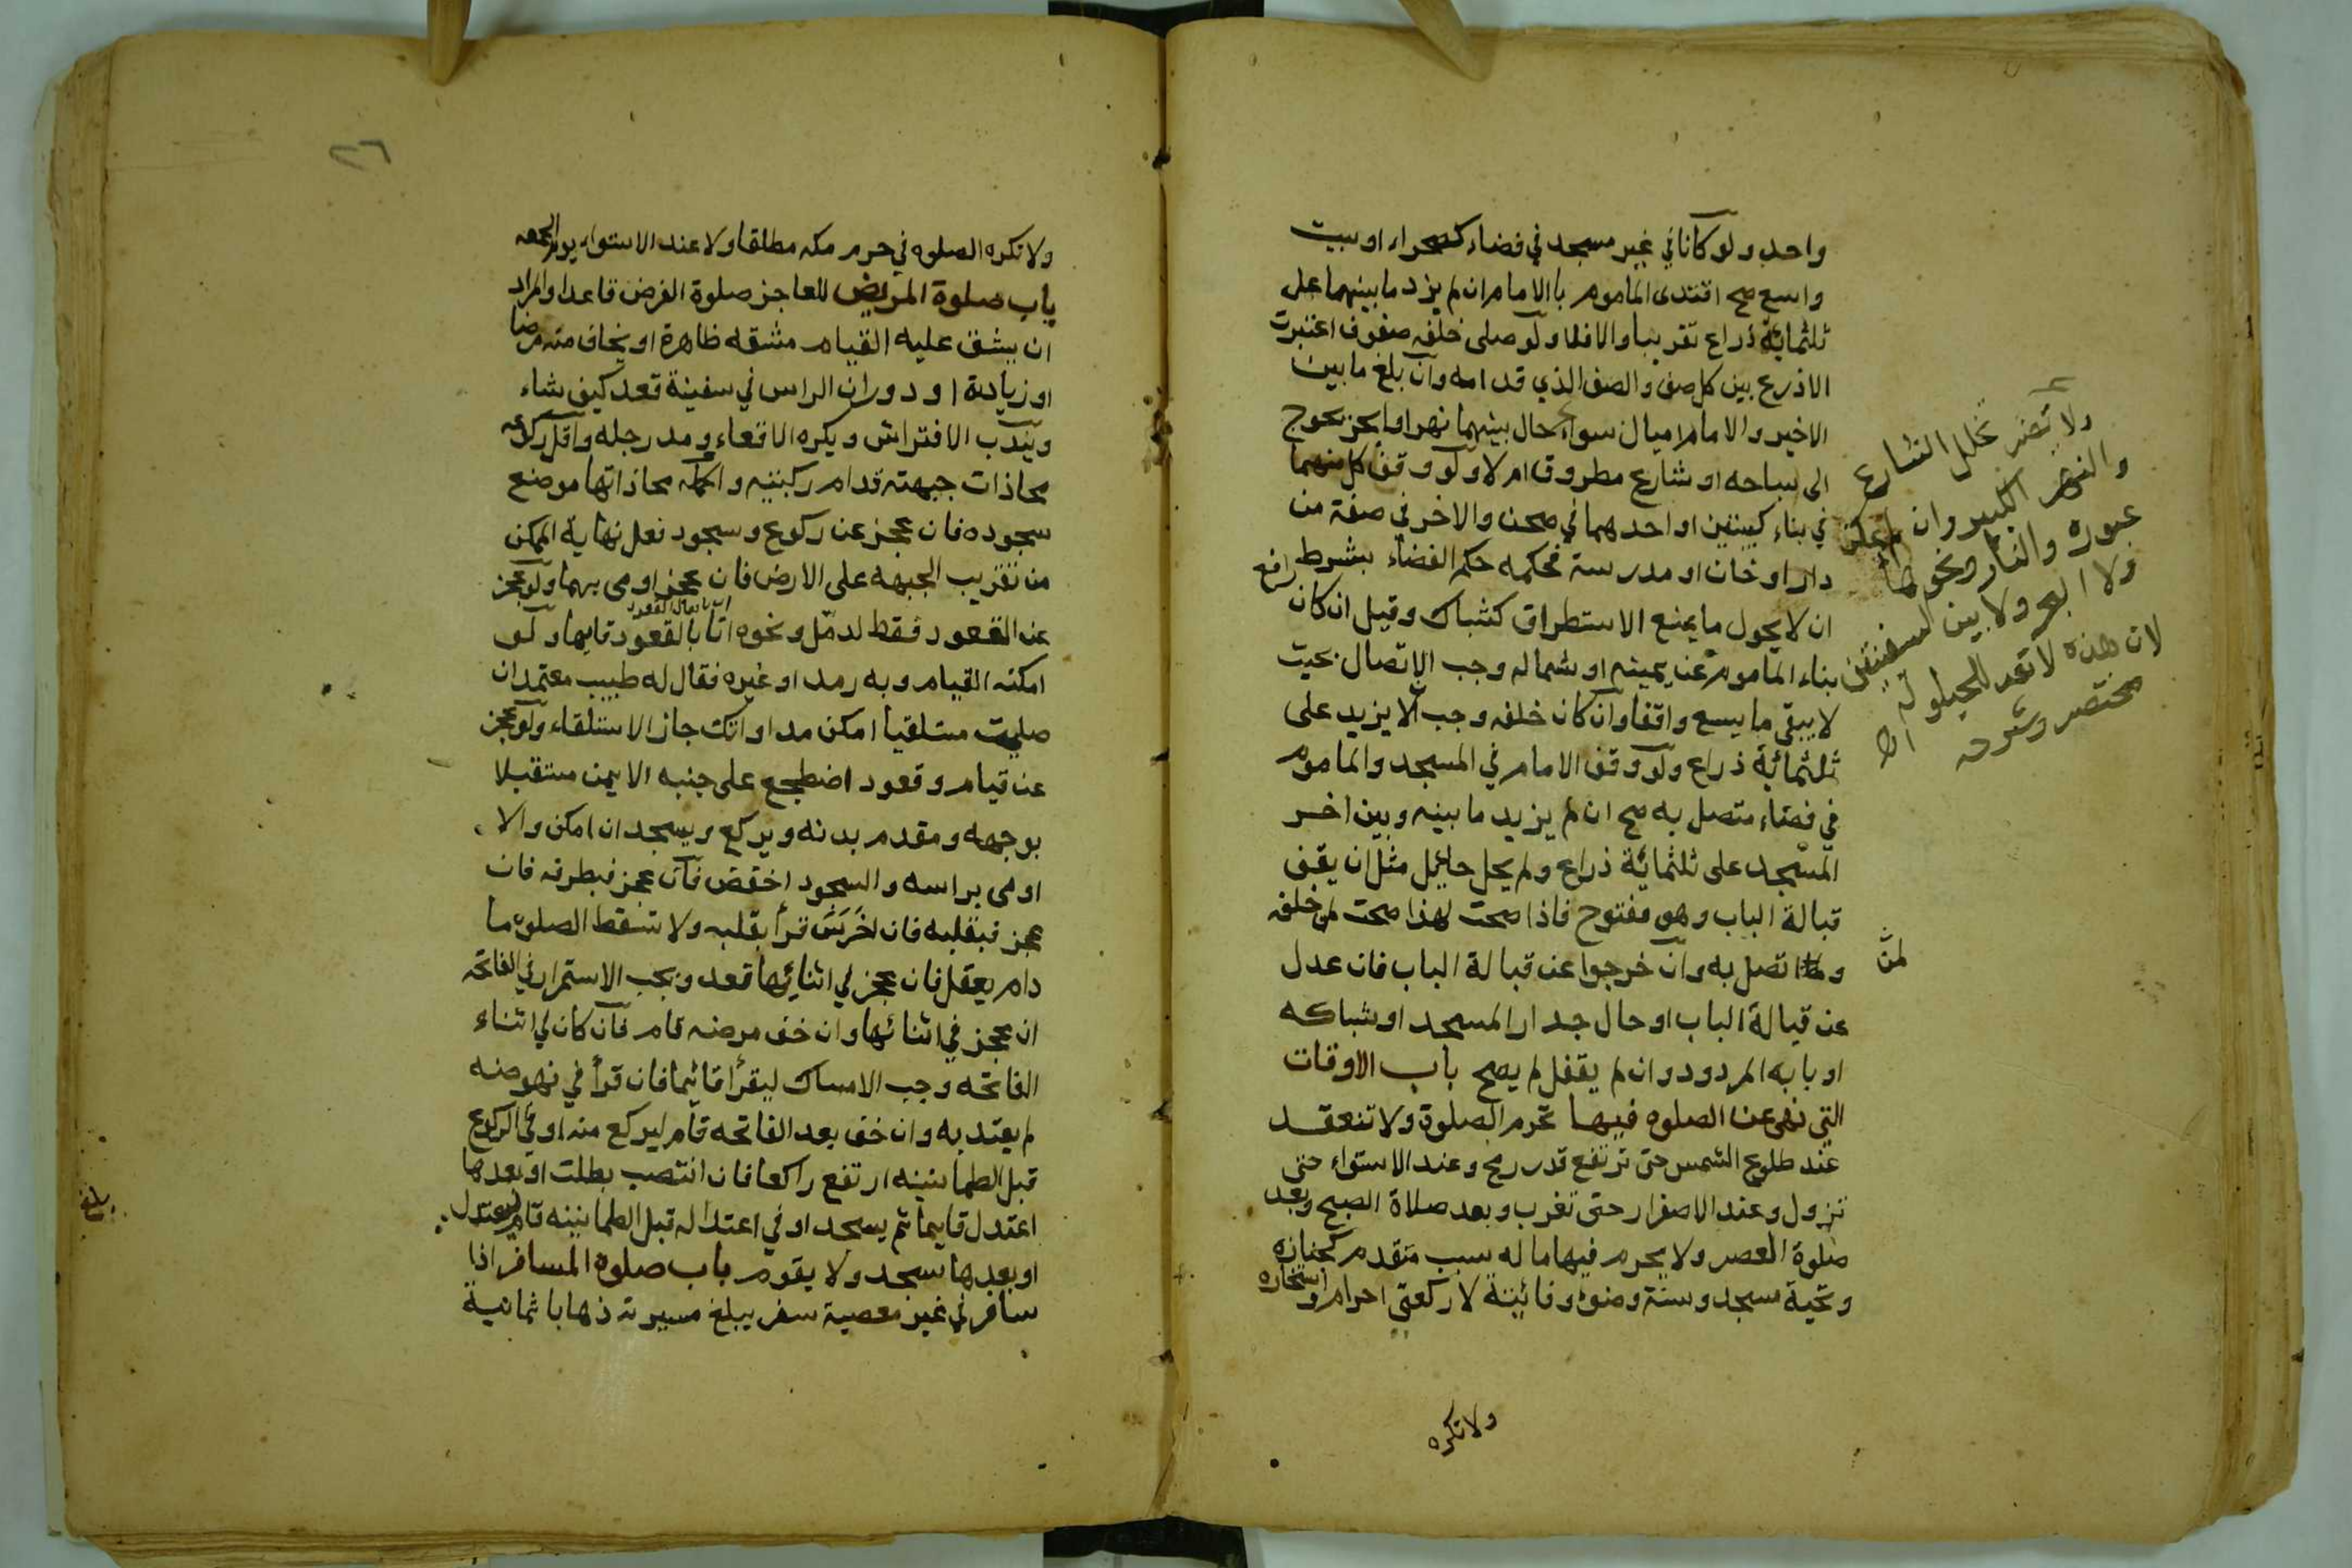 واحد ولو كانا في غير مسجد في فضاء كصحراء او بيت
واسع صح اقتدى الماموم بالامام ان لم يزد ما بينهما على
ثلثمائة ذراع تقريبا والا فلا ولو صلى خلفه صفوف اعتبرت
الاذرع بين كل صف والصف الذي قدامه وان بلغ ما بين
الاخير والامام اميال سواء حال بينهما نهر او بحر يحوج
الى سباحه او شارع مطروق ام لا ولو وقف كل منهما
في بناء كبيتين او احدهما في صحن والاخر في صفة من
دار او خان او مدرسة فحكمه حكم الفضاء بشرط
ان لا يحول ما يمنع الاستطراق كشباك وقيل ان كان
بناء الماموم عن يمينه او شماله وجب الاتصال بحيث
لا يبقى ما يسع واقفا وان كان خلفه وجب الا يزيد على
ثلثمائة ذراع ولو وقف الامام في المسجد والماموم
في فضاء متصل به صح ان لم يزيد ما بينه وبين اخر
المسجد على ثلثمائة ذراع ولم يحل حايل مثل ان يقف
قبالة الباب وهو مفتوح فاذا صحت لهذا صحت لمن خلفه
اتصل به وان خرجوا عن قبالة الباب فان عدل
عن قبالة الباب او حال جدار المسجد او شباكه
او بابه المردود وان لم يقفل لم يصح باب الاوقات
التي نهى عن الصلوه فيها تحرم الصلوة ولا تنعقد
عند طلوع الشمس حتى ترتفع قدر رمح وعند الاستواء حتى
تزول وعند الاصفرار حتى تغرب وبعد صلاة الصبح وبعد
صلوة العصر ولا يحرم فيها ما له سبب متقدم كجنازه
وتحية مسجد وسنة وضوء وفائتة لا ركعتي احرام واستخاره
ولا تكره
ولا يضر تخلل الشارع
والنهر الكبير وان لم يمكن
عبوره والنار ونحوها
ولا البحر ولا بين السفينتين
لان هذه لا تعد للحيلولة
مختصر وشرحه
لمن
٢٦
ولا تكره الصلوه في حرم مكه مطلقا ولا عند الاستواء يوم الجمعه
باب صلوة المريض للعاجز صلوة الفرض قاعدا والمراد
ان يشق عليه القيام مشقه ظاهرة او يخاف منه مرضا
او زيادة او دوران الراس في سفينة قعد كيف شاء
ويندب الافتراش ويكره الاقعاء ومد رجله واقل ركوعه
محاذات جبهته قدام ركبتيه واكمله محاذاتها موضع
سجوده فان عجز عن ركوع وسجود فعل نهاية الممكن
من تقريب الجبهه على الارض فان عجز اومى بهما ولو عجز
عن القعود فقط لدمل ونحوه اتا بالقعود قايما ولو
امكنه القيام وبه رمد او غيره فقال له طبيب معتمد ان
صليت مستلقيا امكن مداواتك جاز الاستلقاء ولو عجز
عن قيام وقعود اضطجع على جنبه الايمن مستقبلا
بوجهه ومقدم بدنه ويركع ويسجد ان امكن والا
اومى براسه والسجود اخفض فان عجز فبطرفه فان
عجز فبقلبه فان خرس قرأ بقلبه ولا تسقط الصلوه ما
دام يعقل فان عجز في اثنائها قعد ويجب الاستمرار في الفاتحه
ان عجز في اثنائها وان خف مرضه قام فان كان في اثناء
الفاتحه وجب الامساك ليقرأ قائما فان قرأ في نهوضه
لم يعتد به وان خف بعد الفاتحه قام ليركع منه او في الركوع
قبل الطمانينه ارتفع راكعا فان انتصب بطلت او بعدها
اعتدل قايما ثم يسجد او في اعتداله قبل الطمانينه قام ليعتدل
او بعدها سجد ولا يقوم باب صلوة المسافر اذا
سافر في غير معصية سفر يبلغ مسيرته ذهابا ثمانية